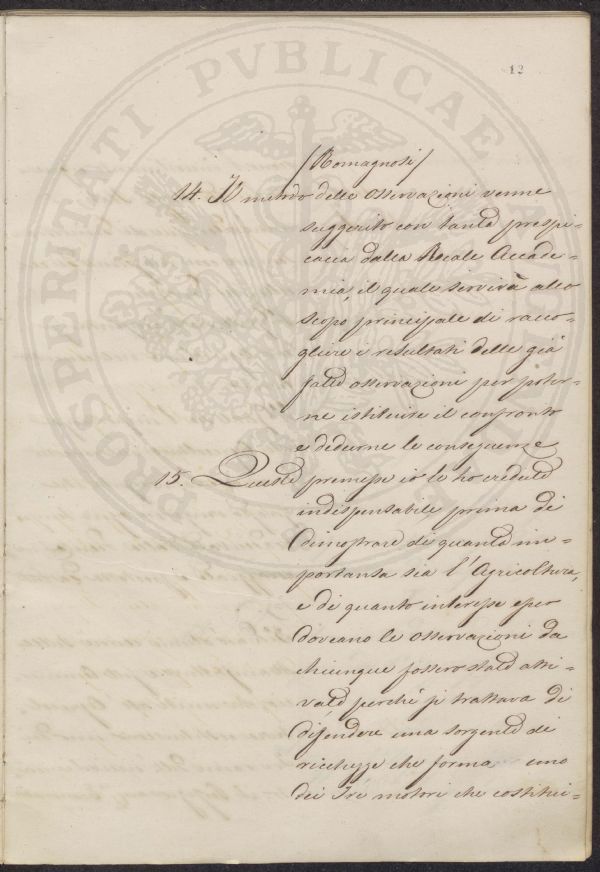 12
/Romagnosi/
14. Il metodo delle osservazioni venne
suggerito con tanta prespi=
cacia dalla Reale Accade=
mia, il quale servirà allo
scopo principale di racco=
gliere i resultati delle già
fatte osservazioni per poter=
ne istituire il confronto
e dedurne le conseguenze
15. Queste premesse io le ho credute
indispensabili prima di
dimostrare di quanta im=
portanza sia l'Agricoltura,
e di quanto interesse esser
doveano le osservazioni da
chiunque fossero state atti=
vate perchè si trattava di
difendere una sorgente di
ricchezze che forma uno
dei tre motori che costitui=
PROSPERITATI PVBLICAE